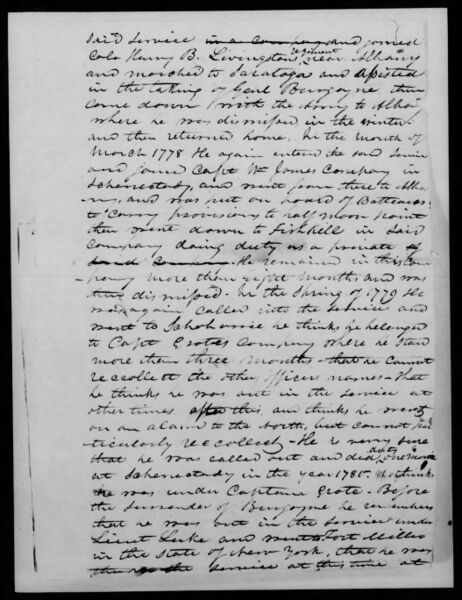 said service in a company and joined
Colo Henry B. Livingstons regiment near Albany
and marched to Saratoga and assisted
in the taking of Genl Burgoyne then
come down with the army to Alba
where he was dismissed in the winter
and then returned home. In the month of
March 1778 He again entered the said service
and joined Capt Wm James Company in
Schenectady, and went from there to Alba
ny, and was put on board of Batteaues
to carry provisions to half moon point
then went down to Fishkill in said
Company doing duty as a private of
said He remained in this com
pany more than eight months and was
dismissed - In the Spring of 1779 He
was again called into the service and
went to Schoharie he thinks he belonged
to Capt Grotes Company where he staid
more than three months - that he cannot
reccollect the other officer names - that
he thinks he was out in the service at
other times after this, and thinks he went
on an alarm to the North, but cannot par
ticularly reccollect - He is very sure
that he was called out and did duty one month
at Schenectady in the year 1780. thinks
he was under Captain Grote - Before
the surrender of Burgoyne he remembers
that he was out in the service under
Lieut Luke and went to Fort Miller
in the state of New York, that he was
the service at this time at